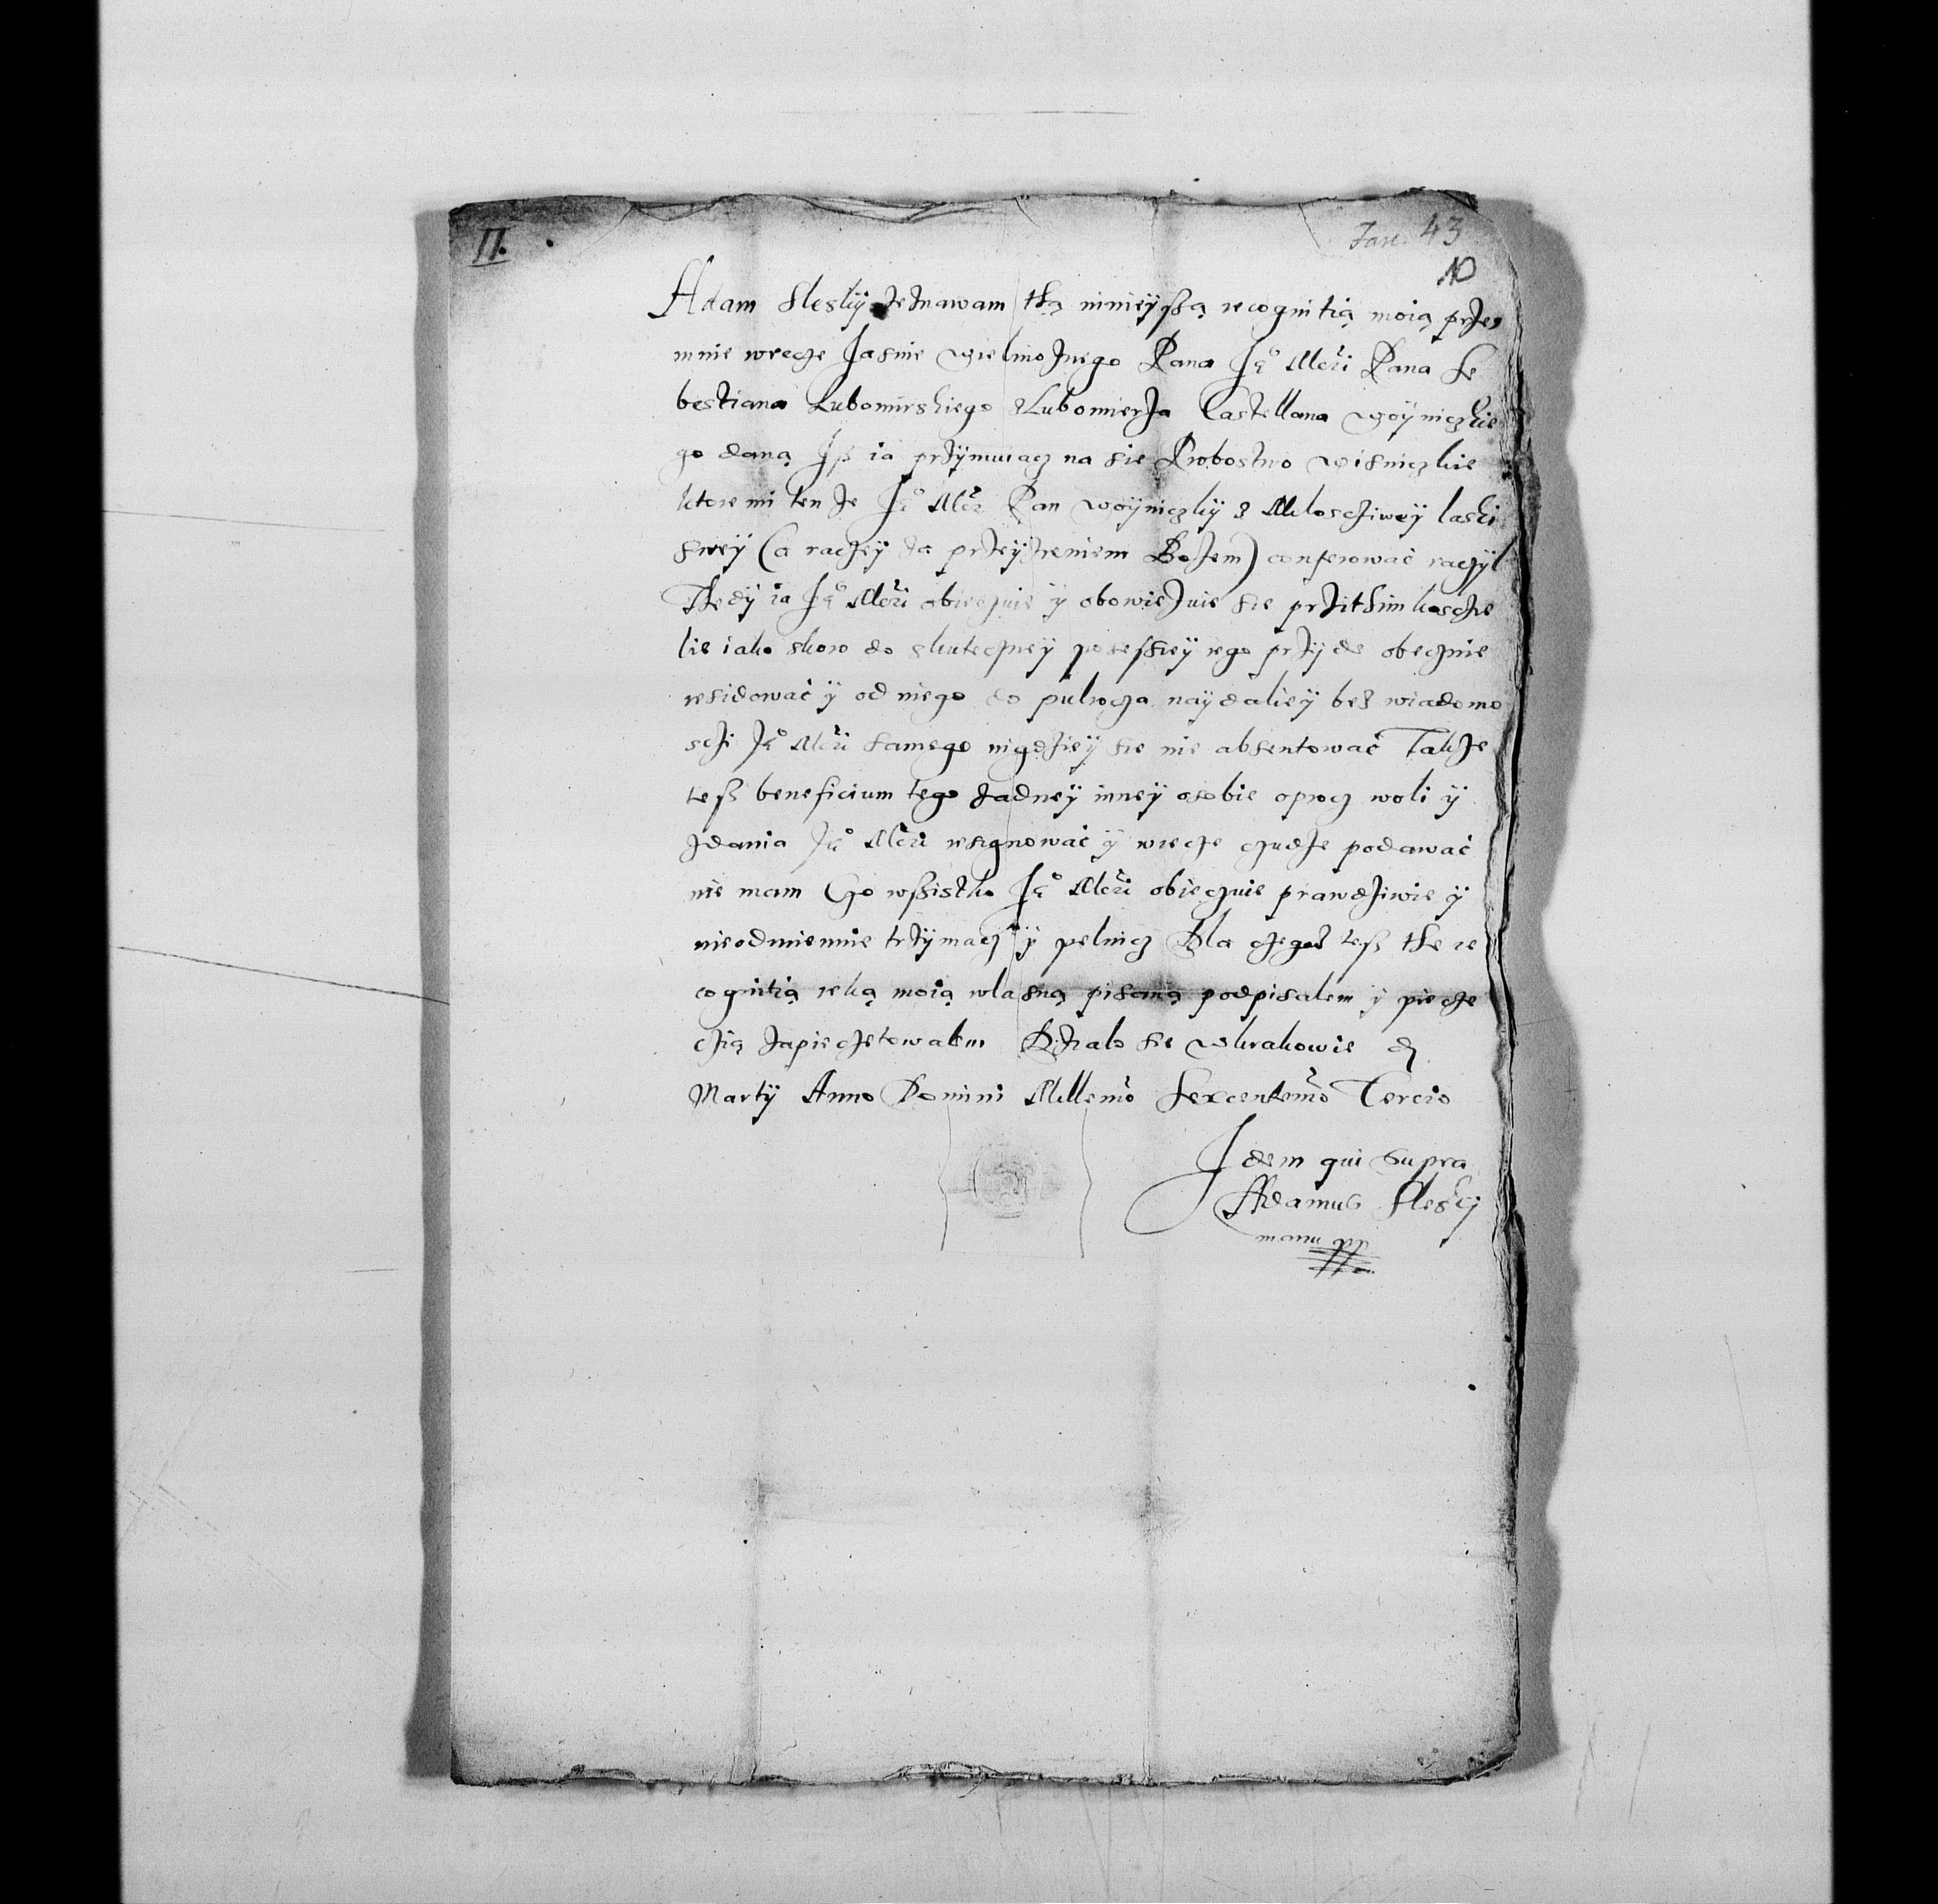 II.
Fasc. 43
10
Adam Sleskÿ zeznawam thą ninieÿszą recognitią moią przez
mnie wręcze Jasnie wielmoznego Pana Je° Mczi Pana Se
bestiana Lubomirskiego z Lubomierza Castellana woÿniczkie
go daną Jsz ia przÿmuiacz na sie Probostwo wisniczkie
ktore mi ten ze Je° Mcz Pan woÿniczkÿ z Milosczÿweÿ laski
sweÿ (a raczeÿ za przeÿzreniem Bozem) conferowac raczÿl
Thedÿ ia Je° Mczi obieczuie ÿ obowiezuie sie przÿthim koscze
lie iako skoro do skuteczneÿ possessieÿ iego przÿde obecznie
residowac ÿ od niego do pulrocza naÿdalieÿ bez wiadomo
sczi Je° Mczi samego nigdzieÿ sie nie absentowac Takze
tesz beneficium tego zadneÿ inneÿ osobie oprocz woli ÿ
zdania Je° Mczi resignowac ÿ wręcze czudze podawac
nie mam Czo wszistko Je° Mczi obieczuie prawdziwie ÿ
nieodmiennie trzÿmacz ÿ pelnicz Dla czegoz tesz the re
cognitią reką moią wlasną pisaną podpisalem ÿ piecze
czią zapieczetowalem Dzialo sie w krakowie
Martÿ Anno Domini Millemo Sexcentemo Tercio
Idem qui supra
Adamus Sleskj
manu pp